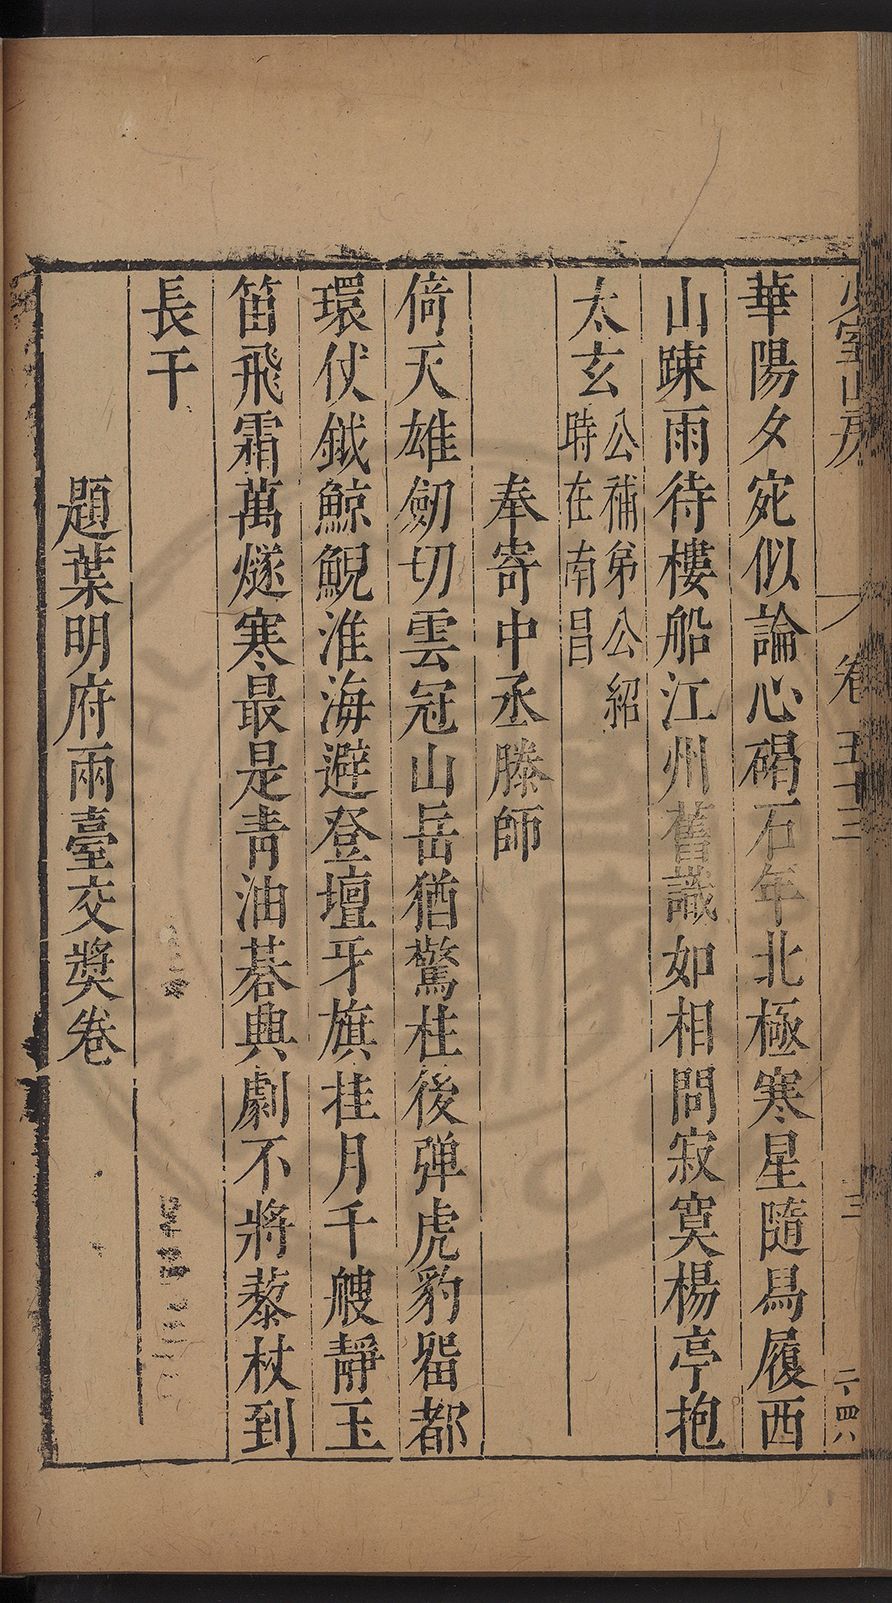 少室山房 卷五十三 三 二四八
華陽夕宛似論心碣石年北極寒星隨舄履西
山踈雨待樓船江州舊識如相問寂寞楊亭抱
太玄公補弟公紹時在南昌
奉寄中丞滕師
倚天雄劒切雲冠山岳猶驚柱後弹虎豹畱都
環仗鉞鯨鯢淮海避登壇牙旗挂月千艘靜玉
笛飛霜萬燧寒最是青油碁興劇不將藜杖到
長干
題葉明府兩臺交奬卷